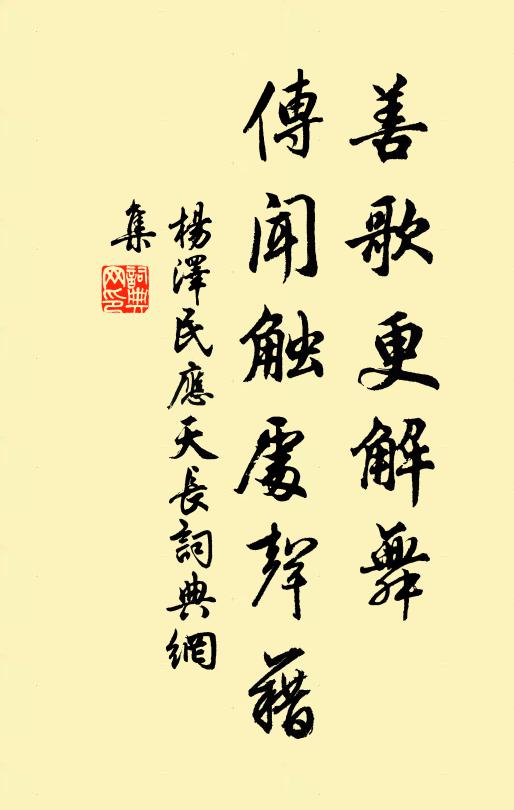 善歌更解舞
傳聞触處聲藉
楊澤民應天長詞典網
集
詞典
网印